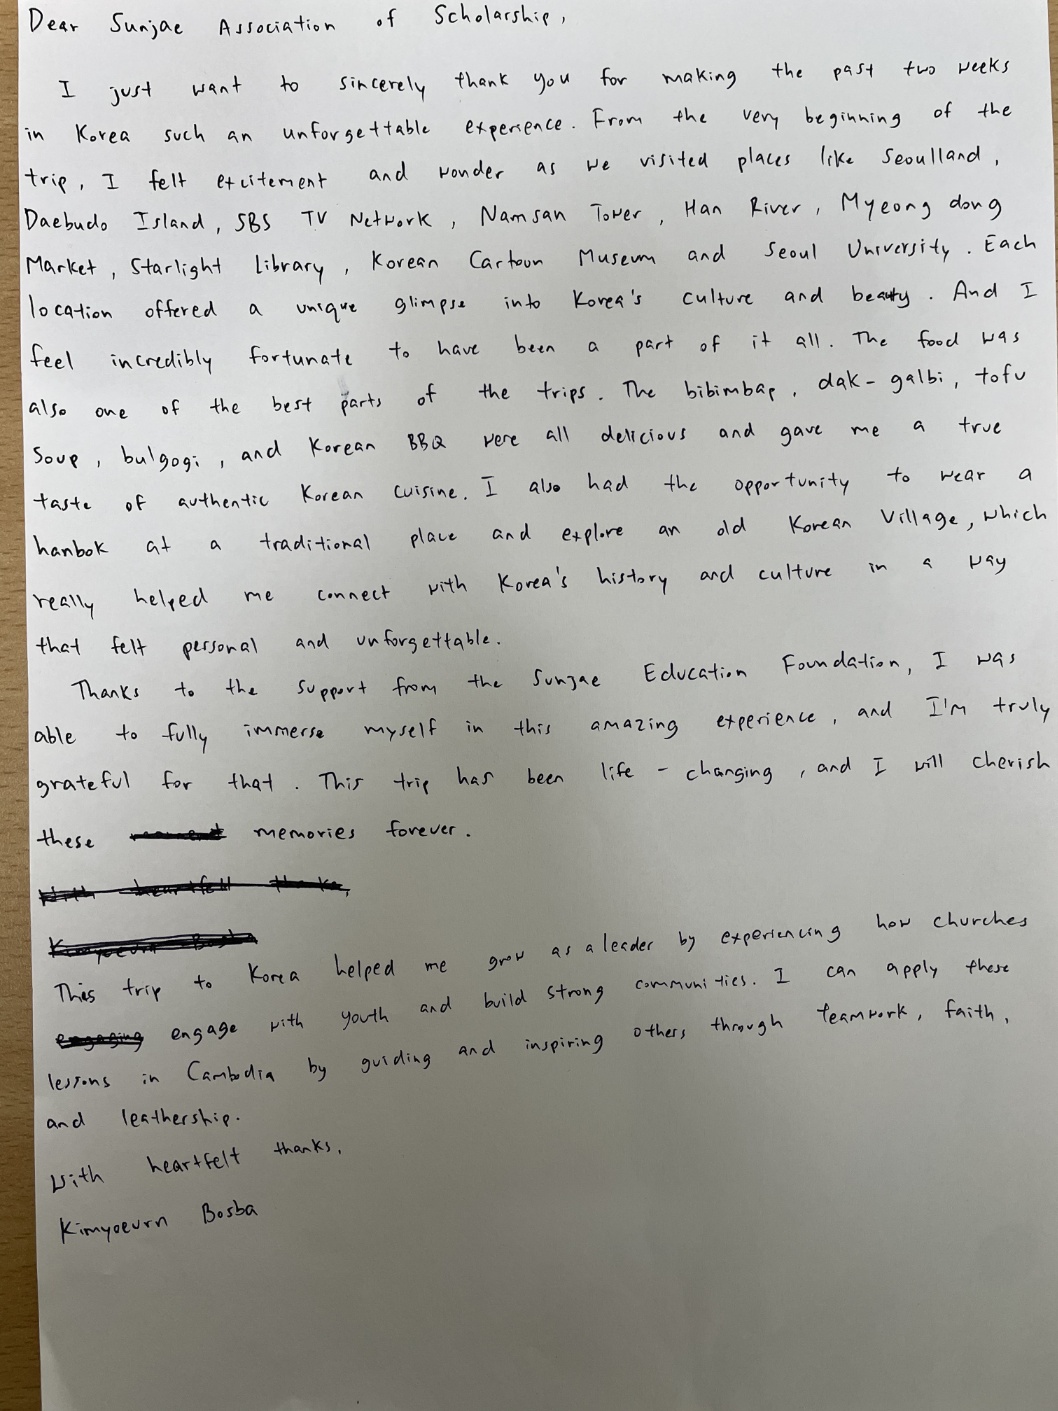 Dear Sunjae Association of Scholarship,
I just want to sincerely thank you for making the past two weeks
in Korea such an unforgettable experience. From the very beginning of the
trip, I felt excitement and wonder as we visited places like Seoulland,
Daebudo Island, SBS TV Network, Namsan Tower, Han River, Myeong dong
Market, Starlight Library, Korean Cartoon Museum and Seoul University. Each
location offered a unique glimpse into Korea's culture and beauty. And I
feel incredibly fortunate to have been a part of it all. The food was
also one of the best parts of the trips. The bibimbap, dak-galbi, tofu
Soup, bulgogi, and Korean BBQ were all delicious and gave me a true
taste of authentic Korean cuisine. I also had the opportunity to wear a
hanbok at a traditional place and explore an old Korean Village, which
really helped me connect with Korea's history and culture in a way
that felt personal and unforgettable.
Thanks to the support from the Sunjae Education Foundation, I was
able to fully immerse myself in this amazing experience, and I'm truly
grateful for that. This trip has been life-changing, and I will cherish
these memories forever.
With heartfelt thanks,
Kimyoeurn Bosba
This trip to Korea helped me grow as a leader by experiencing how churches
engaging engage with youth and build strong communities. I can apply these
lessons in Cambodia by guiding and inspiring others through teamwork, faith,
and leathership.
With heartfelt thanks,
Kimyoeurn Bosba